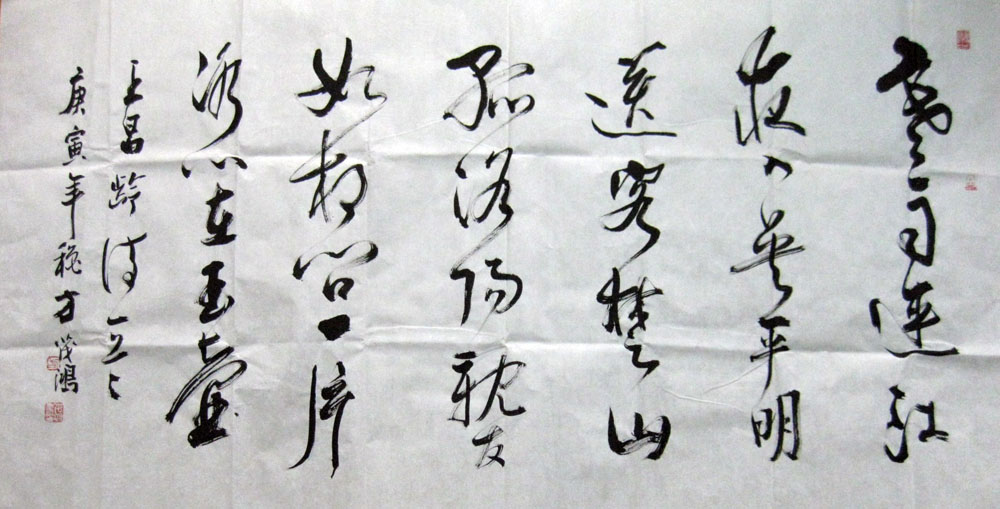 寒雨連江
夜入吴平明
送客楚山
孤洛陽親友
如相问一片
冰心在玉壺
王昌齡诗一首
庚寅年穐方茂鴻